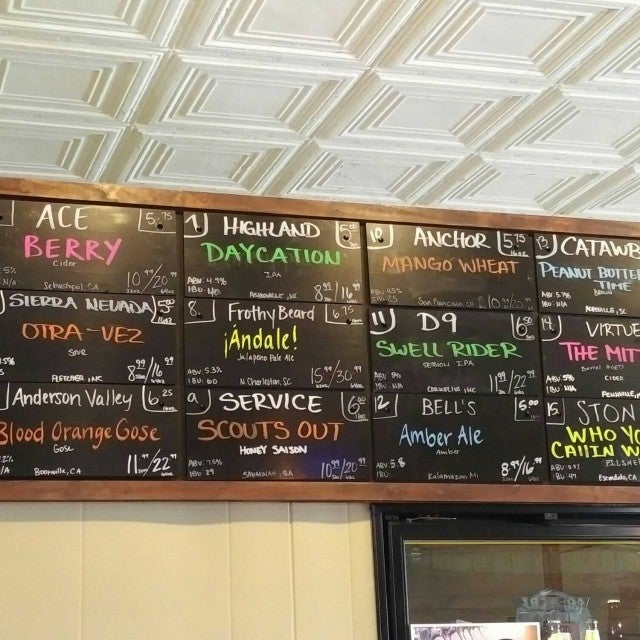 ACE 5.75
BERRY
Cider
5%
N/A
Sebastopol, CA 10.99/20.99
SIERRA NEVADA
OTRA-VEZ
Fletcher, NC 8.99/16.99
Anderson Valley 6.25
Blood Orange Gose
Gose
Boonville, CA 11.99/22.99
7. HIGHLAND 5.00
DAYCATION
IPA
ABV: 4.9%
IBU: 40
Asheville, NC 8.99/16.99
8. Frothy Beard 6.75
¡Ándale!
Jalapeno Pale Ale
ABV: 5.3%
IBU: 60
N Charleston, SC 15.99/30.99
9. SERVICE 6.00
SCOUTS OUT
HONEY SAISON
ABV: 7.5%
IBU: 29
SAVANNAH, GA 10.99/20.99
10 ANCHOR 5.75
MANGO WHEAT
ABV: 4.5%
San Francisco, CA 10.99/20.99
11 D9 6.50
SWELL RIDER
SESSION IPA
ABV: 5%
IBU: N/A
Cornelius NC 11.99/22.99
12 BELL'S 5.00
Amber Ale
Amber
ABV: 5.8
Kalamazoo, MI 8.99/16.99
13. CATAWB
PEANUT BUTTER
TIME
BROWN
ABV: 5.7%
ASHEVILLE, NC
14. VIRTUE
THE MIT
Barrel Aged
CIDER
IBU N/A
15. STON
WHO YO
CALLIN W
PILSNE
Escondido, CA